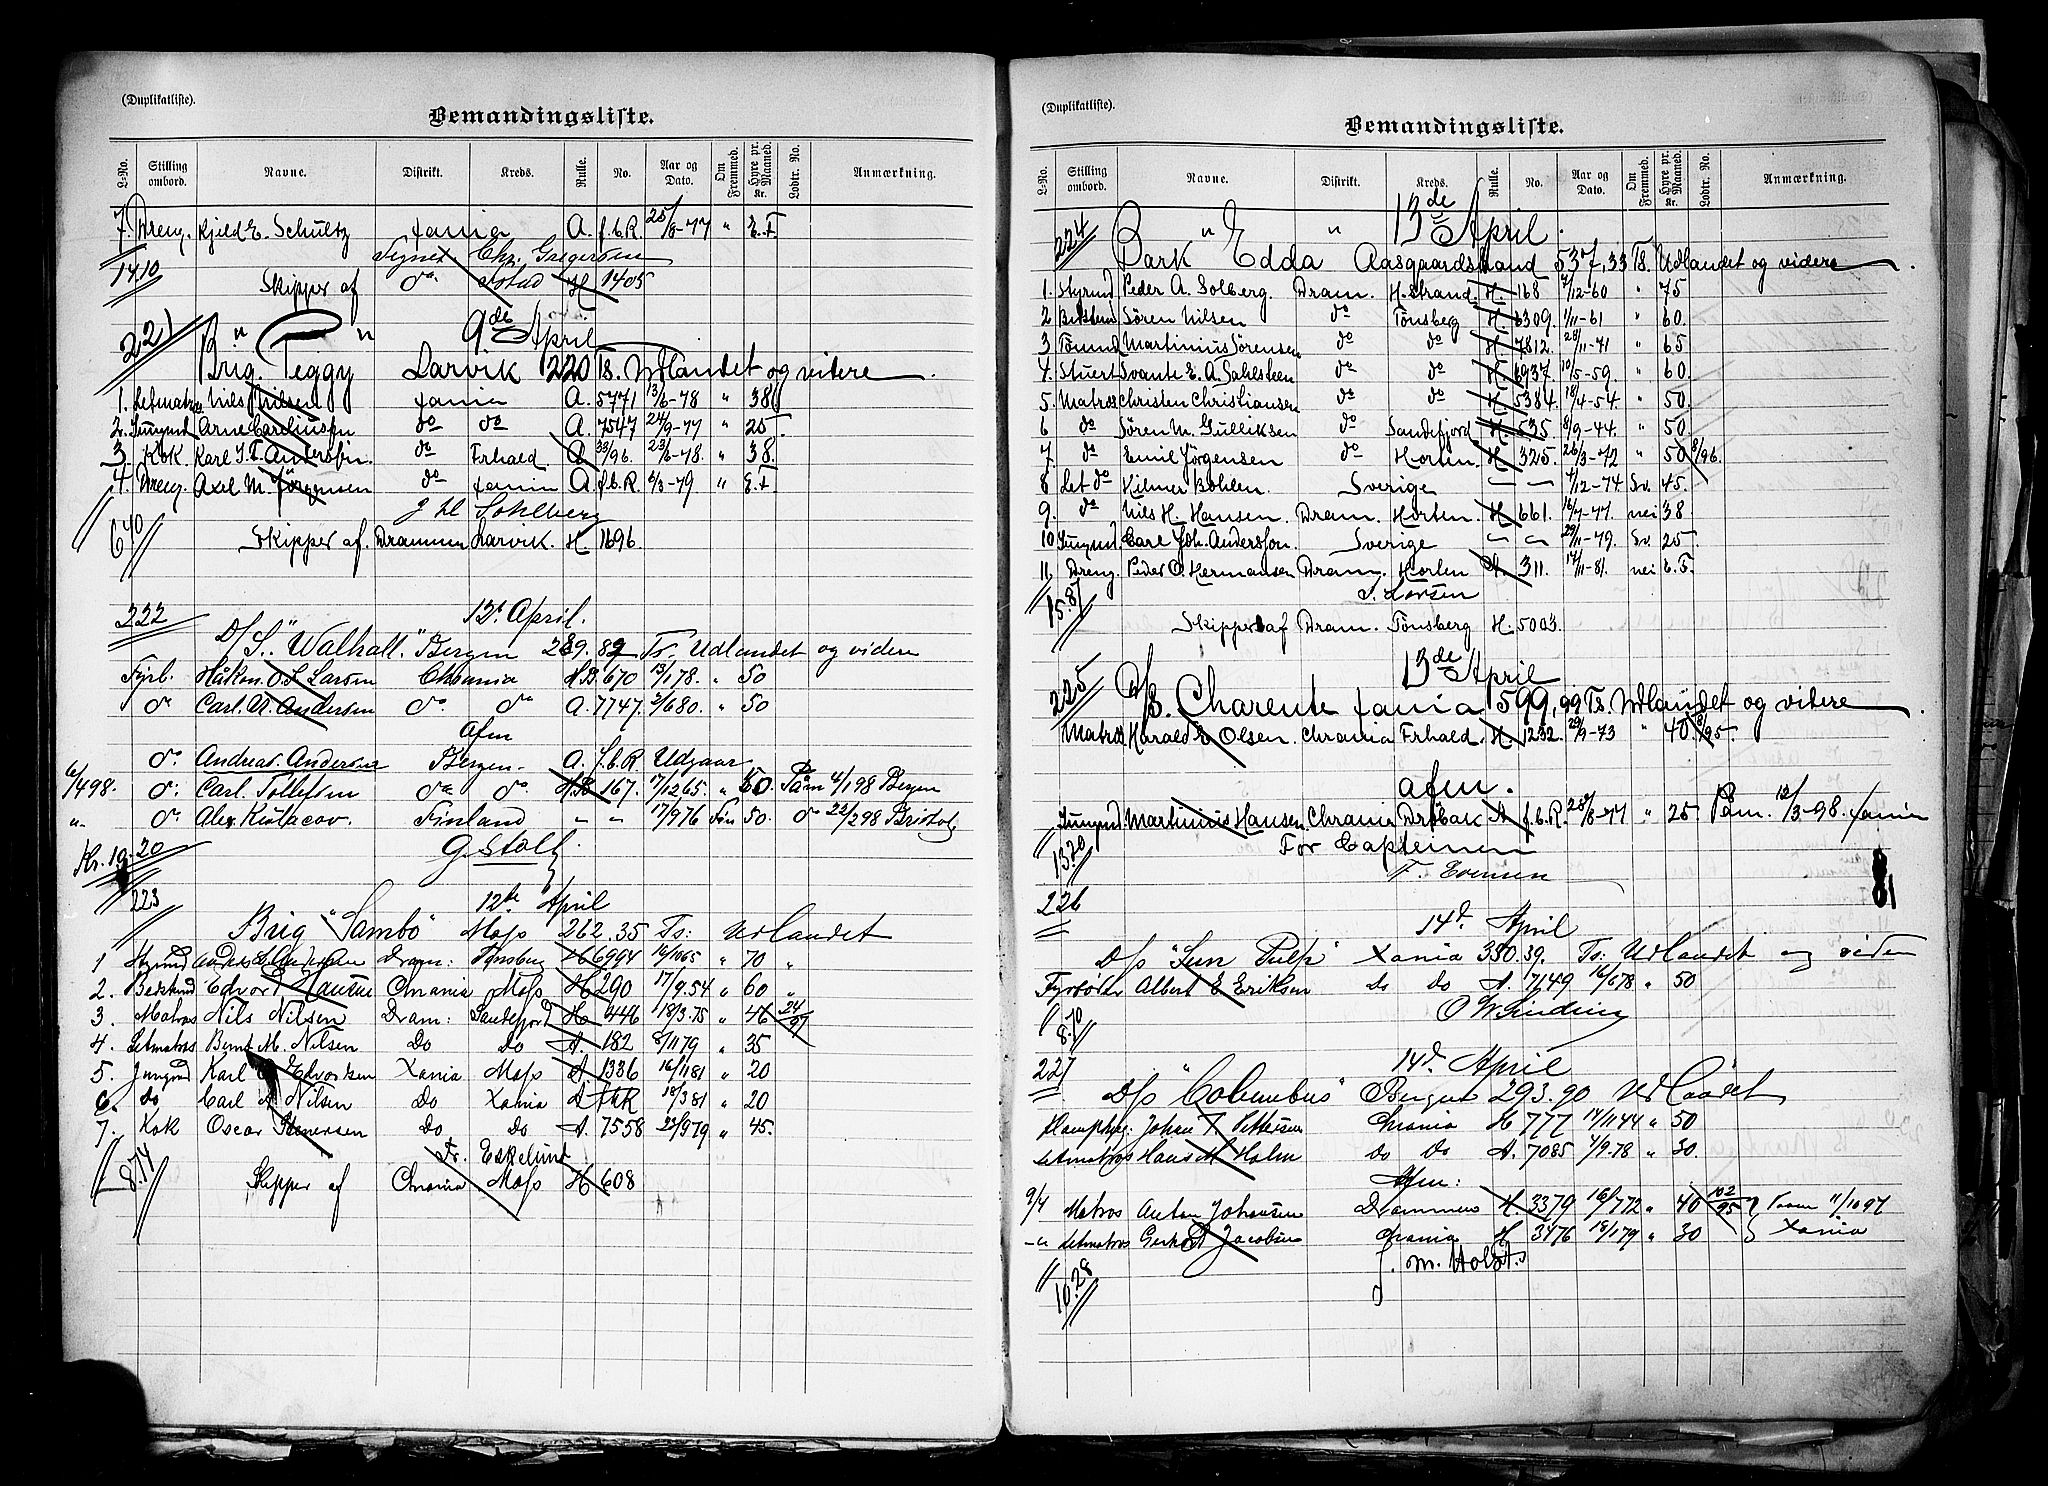 (Duplikatliste).
Bemandingsliste.
L-No. Stilling ombord. Navne. Distrikt. Kreds. Rulle. No. Aar og Dato. Om Fremmed. Hyre pr. Maaned. Kr. Lodtr. No. Anmærkning.
7. Dreng. Kjeld E. Schultz Xania A. f.b.R. 25/8-77 " E.F.
Chr. Gregersen
14.10
Skipper af do H 1405
221 " " 9de April
Brig. Peggy Larvik 220 Ts. Udlandet og videre
1. Letmatros Nils Nilsen Xania A. 5771 13/6-78 " 38
2. Jungmd Arne Careliussen do do A. 7547 24/9-77 " 25
3. Kok. Karl J. F. Andersen. do Frhald. A 33/96. 23/6-78. " 38.
4. Dreng. Axel M. Jörgensen do Xania A f.b.R. 6/3-79 " E.F.
Sohlberg
6.40 Skipper af. Drammen Larvik. H 1696.
222 12t April.
D/S. "Walhall" Bergen 289.82 Ts. Udlandet og videre
Fyrb. Håkon. O. S. Larsen Chrania A.B. 670 13/1 78. " 50
do Carl. A. Andersen do. do A. 7747. 2/6 80. " 50
Afm
do. Andreas. Andersen Bergen. A. f.b.R Udgaar
6/4 98. do. Carl. Tollefsen do do A.B 167. 17/12 65. " 50. Påm 4/1 98 Bergen
" do. Alex. Finland " " 17/9 76 Fin 50. do 22/2 98 Bristol
Kr. 19.20 G. Stoltz.
223 12te April
Brig "Sambo" Moss 262.35 Ts: Udlandet
1 Styrmd Andreas Dram: Tønsberg H 6994 16/10 65 " 70 "
2. Bedstmd Edvard Hansen Chrania Moss H 290 17/9.54 " 60 "
3. Matros Nils Nilsen Dram: Sandefjord H 446 18/3.75 " 46 24/97
4. Letmatros Bernt M. Nilsen Do Do A. 182 8/11 79 " 35
5. Jungmd Karl Edvardsen Xania Moss A. 1336 16/11 81 " 20
6. do Carl A. Nilsen Do Xania A fbR 18/3 81 " 20
7. Kok Oscar Stenersen Do Do A. 7558 22/9 79 " 45.
Fr. Eskelund
8.74 Skipper af Chrania Moss H 608
(Duplikatliste).
Bemandingsliste.
L-No. Stilling ombord. Navne. Distrikt. Kreds. Rulle. No. Aar og Dato. Om Fremmed. Hyre pr. Maaned. Kr. Lodtr. No. Anmærkning.
224 " " 13de April.
Bark Edda Aasgaardstrand 537,33 Ts. Udlandet og videre.
1. Styrmd Peder A. Solberg. Dram. H.strand. H. 168 7/12-60 " 75
2 Bestmd Sören Nilsen do Tönsberg H. 6309. 1/11-61 " 60.
3 Tömmd Martinius Sörensen do do H. 7812. 28/11-71 " 65
4. Stuert Svante E. A. Sahlsteen do do H. 6937. 10/5-59. " 60.
5. Matros Christen Christiansen do do H. 5384. 18/4-54. " 50.
6 do Sören M. Gulliksen do Sandefjord H. 535. 8/9-44. " 50.
7. do Emil Jörgensen do Horten. H 325. 26/3-72 " 50 8/96.
8 Let do Hilmer Bohlen. Sverige 7/12-74. Sv. 45.
9. do Nils H. Hansen. Dram. Horten. H 661. 16/7-77. nei 38
10 Jungmd Carl Joh. Andersson. Sverige 29/11-79. Sv. 25.
11 Dreng. Peder O. Hermansen Dram. Horten A. 311. 14/11-81. nei E.F.
15.87 Larsen
Skipper af Dram. Tönsberg H. 5003.
225 13de April
D/S. Charente Xania 599,99 Ts. Udlandet og videre
Matros Harald E. Olsen. Chrania Frhald. H. 1232. 29/9-73 " 40. 8/95.
afm.
Jungmd Martinius Hansen. Chrania Dröbak A f.b.R. 28/8-77 " 25 Påm. 12/3-98. Xania
13.70 For Capteinen
F. Evensen
226 14d. April
D/s "Sun Pulp" Xania 350.39. Ts: Udlandet og viden
Fyrböder Albert E Eriksen do do A 7149 16/6 78 " 50
8.70
227 14d. April
D/s "Columbus" Bergen 293.90 Udlandet
Johan Pettersen Chrania H 777 14/11 44 " 50
Letmatros Hans M Holm do Do A. 7085 4/9.78 " 30.
Afm:
9/4 Matros Anton Johansen Drammen H. 3379 16/7 72 " 40 102/95 Paam 11/10 97
" Letmatros Gerhard Jacobsen Chrania H 3476 18/1 79 " 30 Xania
J. M. Holst.
16.28